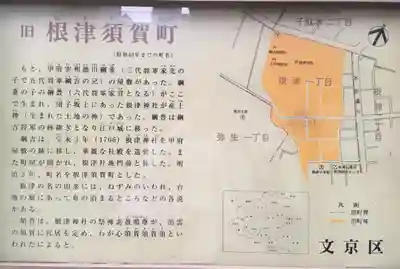 旧 根津須賀町
(昭和40年までの町名)
もと、甲府宰相徳川綱重(三代将軍家光の
子で五代将軍綱吉の兄)の屋敷があった。綱
重の子の綱豊(六代将軍家宣となる)がここ
で生まれ、団子坂上にあった根津神社が産土
神(生まれた土地の神)であった。綱豊は綱吉
将軍の世継ぎとなり江戸城に移った。
綱吉は、宝永3年(1706)根津神社を甲府
屋敷の跡に移し、華麗な社殿を造営した。
町屋が開かれ、根津社地門前と称した。明治
2年、町名を根津須賀町とした。
根津の名の由来には、ねずみのいわれ、台
地の根にあって舟の泊まるところなどの各説
がある。
須賀は、根津神社の祭神素盞嗚尊が、出雲
の須賀に宮居を定め、わが心須賀須賀須と
いわれたによると。
文京区
千駄木二丁目
根津一丁目
弥生一丁目
根津二丁目
凡例